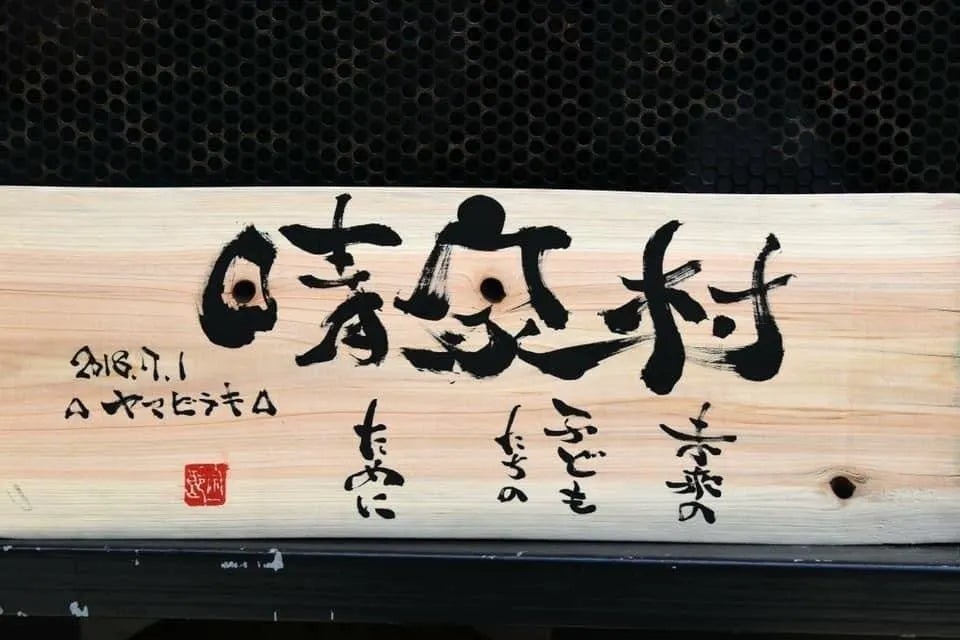 晴家村
未来の
子ども
たちの
ために
2018.7.1
△ヤマビラキ△